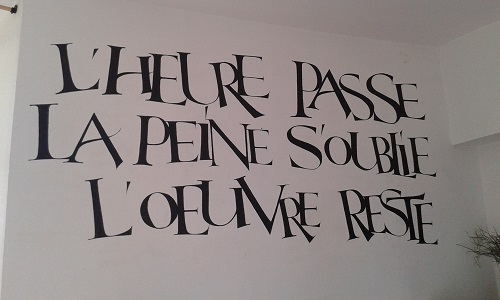 L'HEURE PASSE
LA PEINE S'OUBLIE
L'OEUVRE RESTE